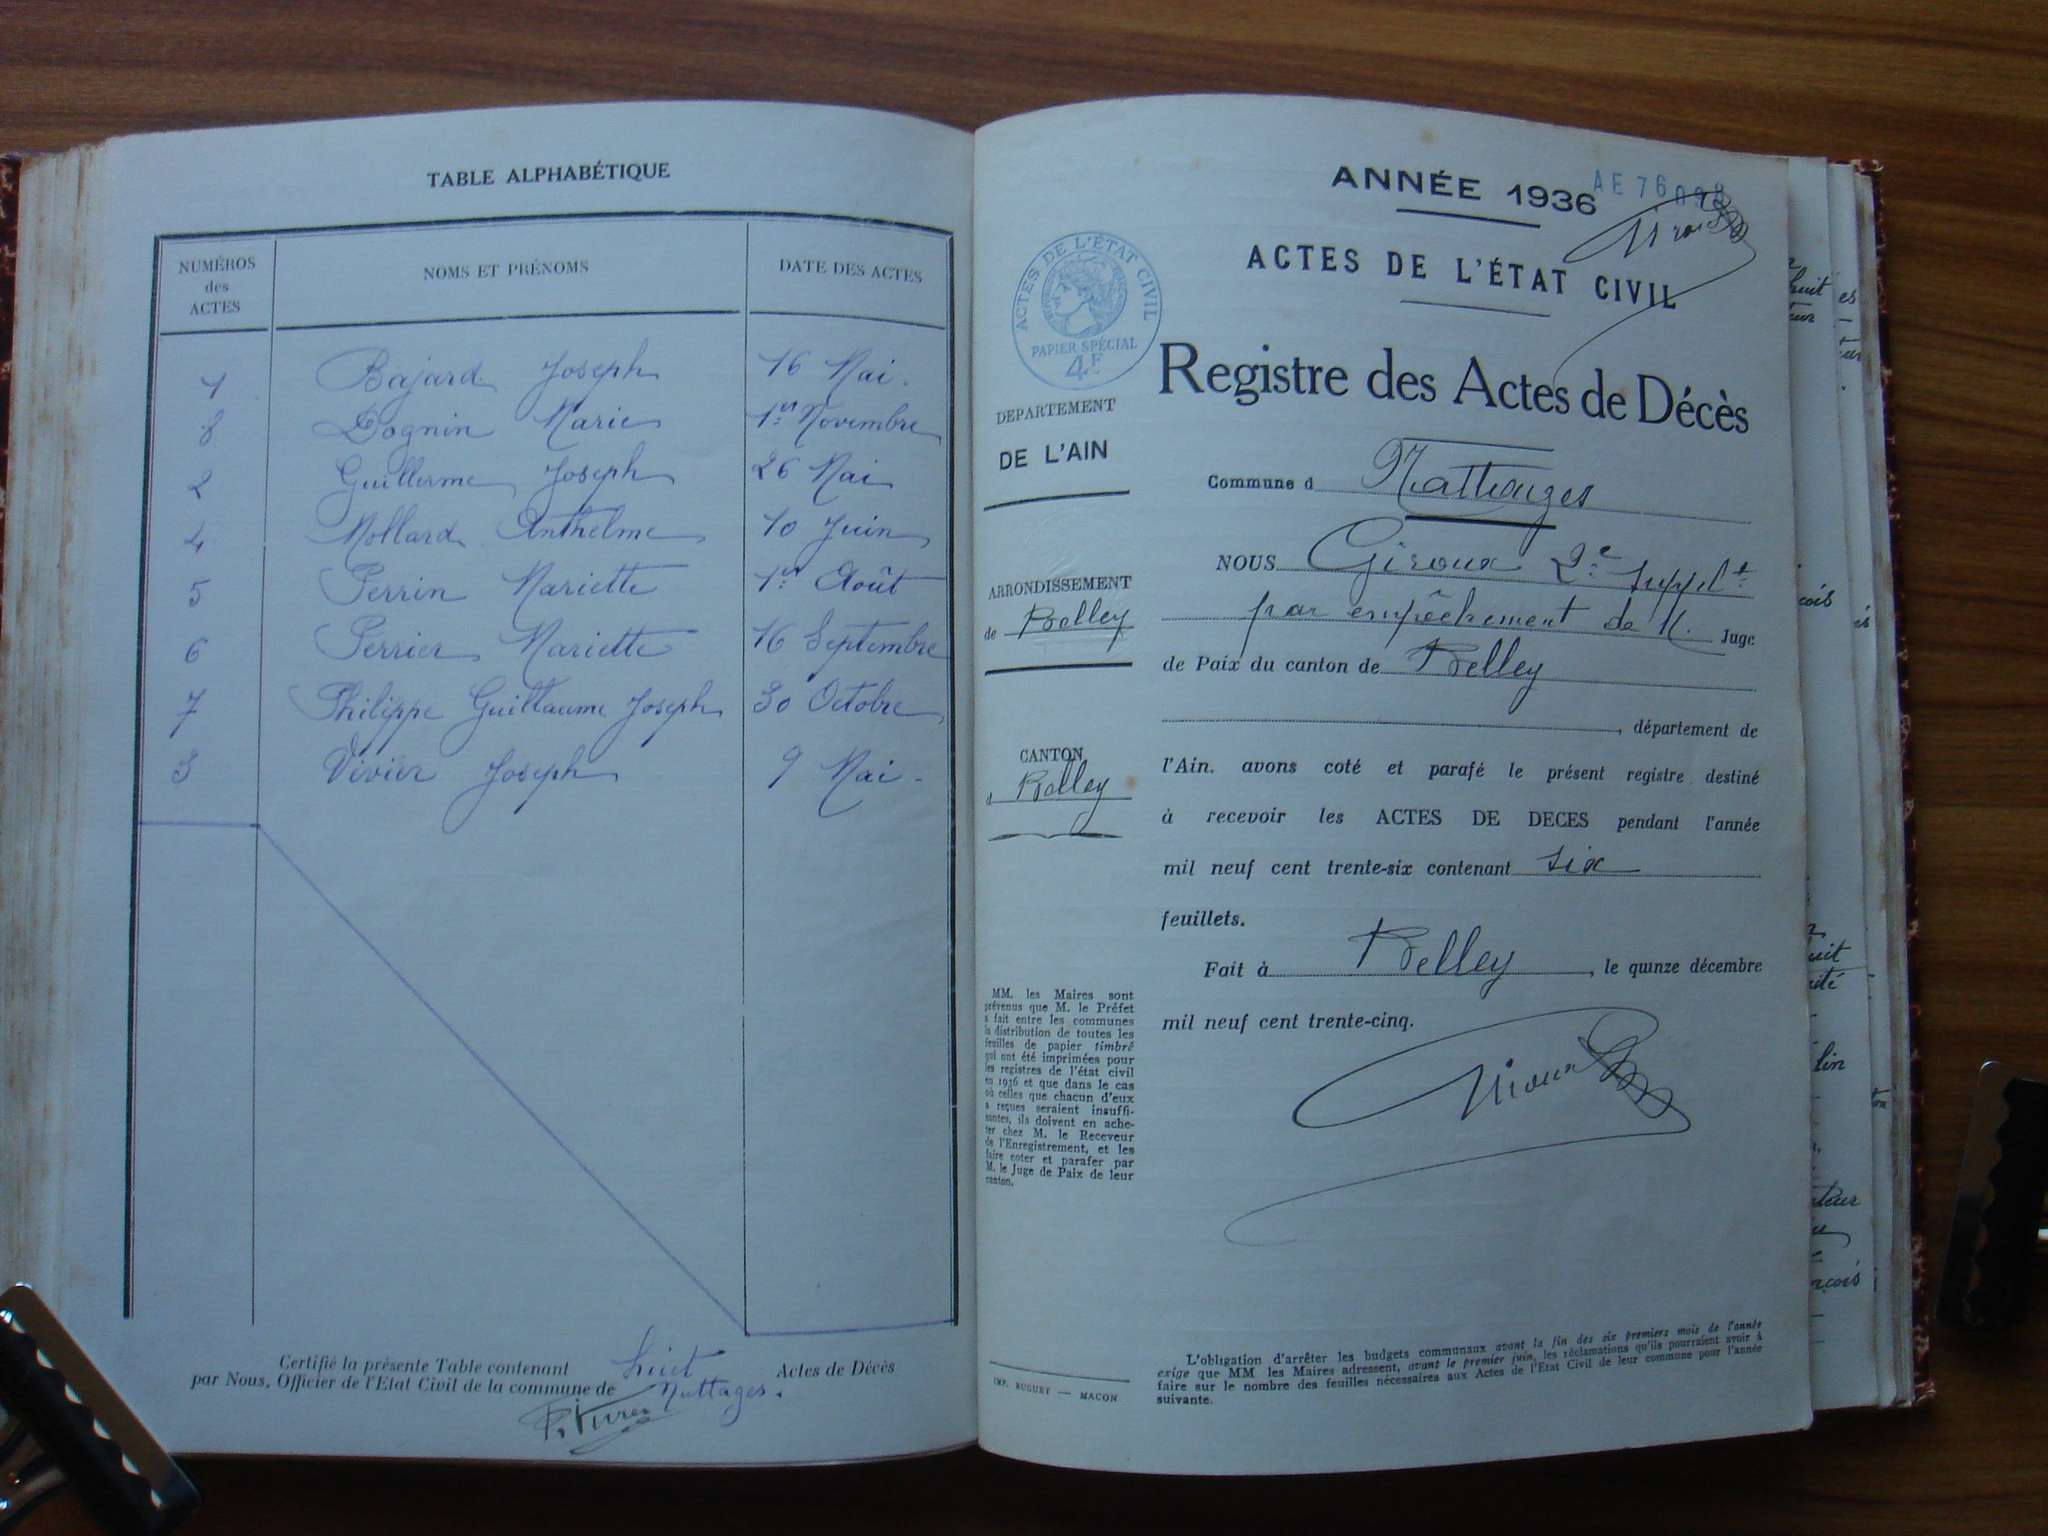 TABLE ALPHABÉTIQUE
NUMÉROS des ACTES NOMS ET PRÉNOMS DATE DES ACTES
1 Bajard Joseph 16 Mai.
8 Dognin Marie 1er Novembre
2 Guillerme Joseph 26 Mai
4 Mollard Anthelme 10 Juin
5 Perrin Mariette 1er Août
6 Perrier Mariette 16 Septembre
7 Philippe Guillaume Joseph 30 Octobre
3 Vivier Joseph 9 Mai.
Certifié la présente Table contenant huit Actes de Décès
par Nous, Officier de l'Etat Civil de la commune de Nattages.
ANNÉE 1936
AE 76
ACTES DE L'ÉTAT CIVIL
ACTES DE L'ÉTAT CIVIL
PAPIER SPÉCIAL
4F
Registre des Actes de Décès
DEPARTEMENT
DE L'AIN
Commune d Nattages
NOUS Giroux 2e suppl.t
ARRONDISSEMENT
de Belley
par empêchement de M. Juge
de Paix du canton de Belley
, département de
CANTON
d Belley
l'Ain. avons coté et parafé le présent registre destiné
à recevoir les ACTES DE DECES pendant l'année
mil neuf cent trente-six contenant six
feuillets.
Fait à Belley, le quinze décembre
mil neuf cent trente-cinq.
Giroux
MM. les Maires sont
prévenus que M. le Préfet
a fait entre les communes
la distribution de toutes les
feuilles de papier timbré
qui ont été imprimées pour
les registres de l'état civil
en 1936 et que dans le cas
où celles que chacun d'eux
a reçues seraient insuffi-
santes, ils doivent en ache-
ter chez M. le Receveur
de l'Enregistrement, et les
faire coter et parafer par
M. le Juge de Paix de leur
canton.
IMP. BUGUET — MACON
L'obligation d'arrêter les budgets communaux avant la fin des six premiers mois de l'année
exige que MM les Maires adressent, avant le premier juin, les réclamations qu'ils pourraient avoir à
faire sur le nombre des feuilles nécessaires aux Actes de l'Etat Civil de leur commune pour l'année
suivante.